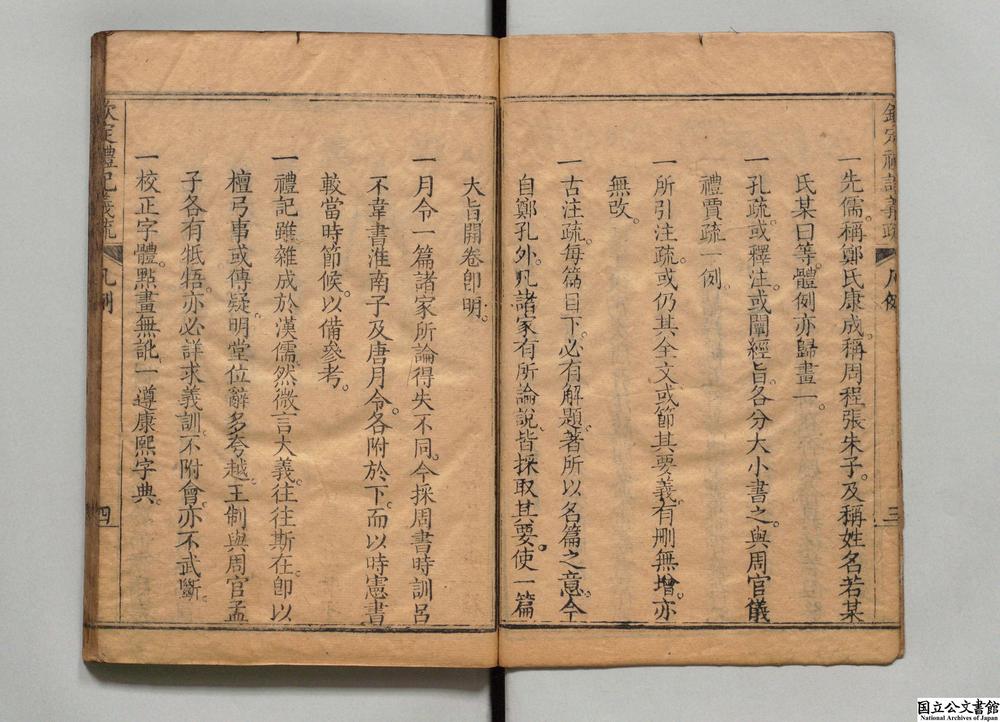 欽定禮記義疏 凡例 三
一先儒。稱鄭氏康成。稱周程張朱子。及稱姓名若某
氏某曰等。體例亦歸畫一。
一孔疏。或釋注。或闡經旨。各分大小書之。與周官儀
禮賈疏一例。
一所引注疏。或仍其全文。或節其要義。有刪無增。亦
無改。
一古注疏。每篇目下。必有解題。著所以名篇之意。今
自鄭孔外。凡諸家有所論說。皆採取其要。使一篇
大旨開卷卽明。
一月令一篇諸家所論得失不同。今採周書時訓呂
不韋書淮南子及唐月令。各附於下。而以時憲書
較當時節候。以備參考。
一禮記雖雜成於漢儒。然微言大義。往往斯在。卽以
檀弓事或傳疑。明堂位辭多夸越。王制與周官孟
子各有牴牾。亦必詳求義訓。不附會。亦不武斷。
一校正字體。點畫無訛。一遵康熙字典。
欽定禮記義疏 凡例 四
国立公文書館
National Archives of Japan